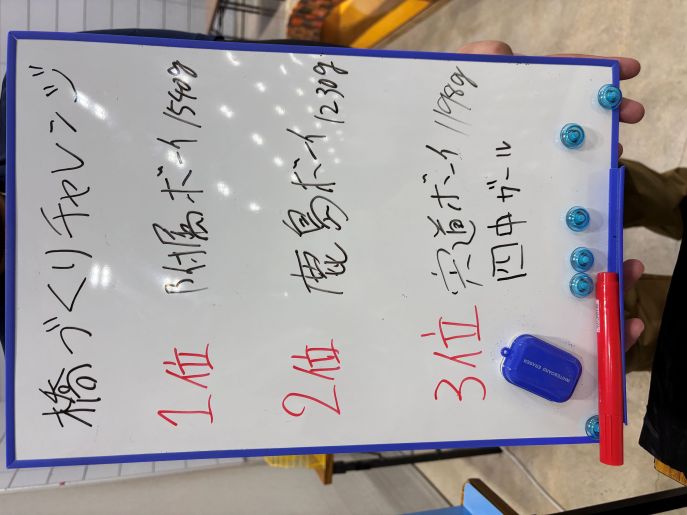 橋づくりチャレンジ
1位 附属ボーイ 1540g
2位 鹿島ボーイ 1230g
3位 宍道ボーイ 1198g
四中ガール
WHITEBOARD ERASER